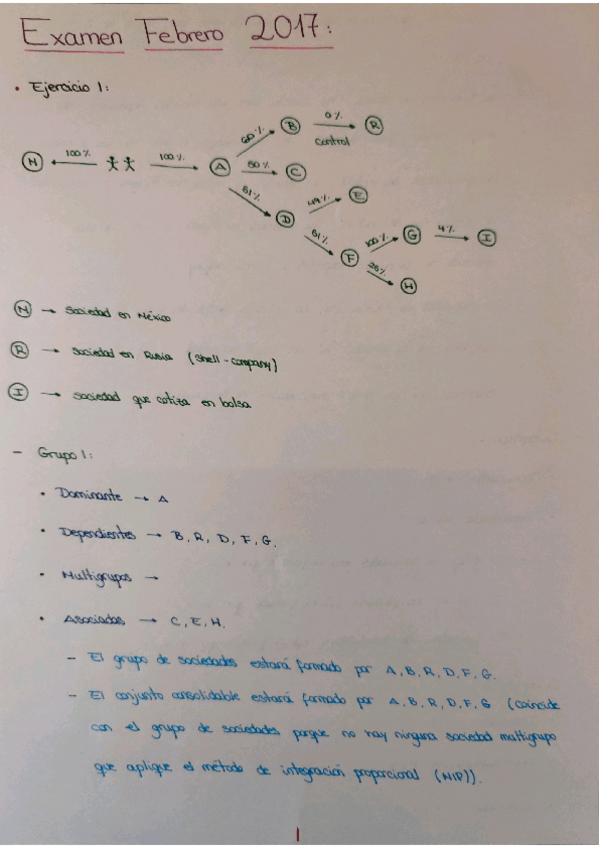 Examen Febrero 2017:
• Ejercicio 1:
N 100% 100% A
60% B 0% control R
50% C
51% D
49% E
51% F
100% G 4% I
25% H
N → Sociedad en México
R → Sociedad en Rusia (Shell-company)
I → sociedad que cotiza en bolsa
- Grupo 1:
• Dominante → A
• Dependientes → B, R, D, F, G.
• Multigrupos →
• Asociadas → C, E, H.
- El grupo de sociedades estará formado por A, B, R, D, F, G.
- El conjunto consolidable estará formado por A, B, R, D, F, G (coincide
con el grupo de sociedades porque no hay ninguna sociedad multigrupo
que aplique el método de integración proporcional (NIP)).
1